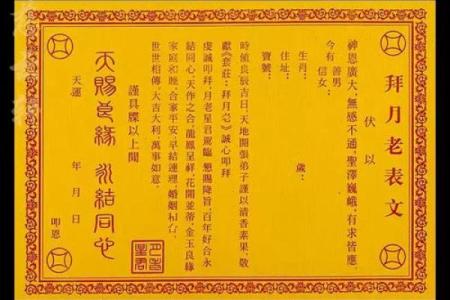 拜月老表文
伏以
神恩廣大，無感不通，聖澤巍峨，有求皆應，
今有善男
信女：
生肖：　歲：
住址：
寶號：
時值良辰吉日，天地開張弟子謹以清香素果、敬
獻《套莊：拜月亭》誠心叩拜
虔誠叩拜月老星君駕臨，懇賜降旨，百年好合永
結同心，天作之合龍鳳呈祥，花開並蒂，金玉良緣
家庭和睦，合家平安，早結連理，婚姻和合，
世世相傳。大吉大利，萬事如意。
謹具牒以上聞
天賜良緣　永結同心
天運　年　月　日
叩恩
月老星君